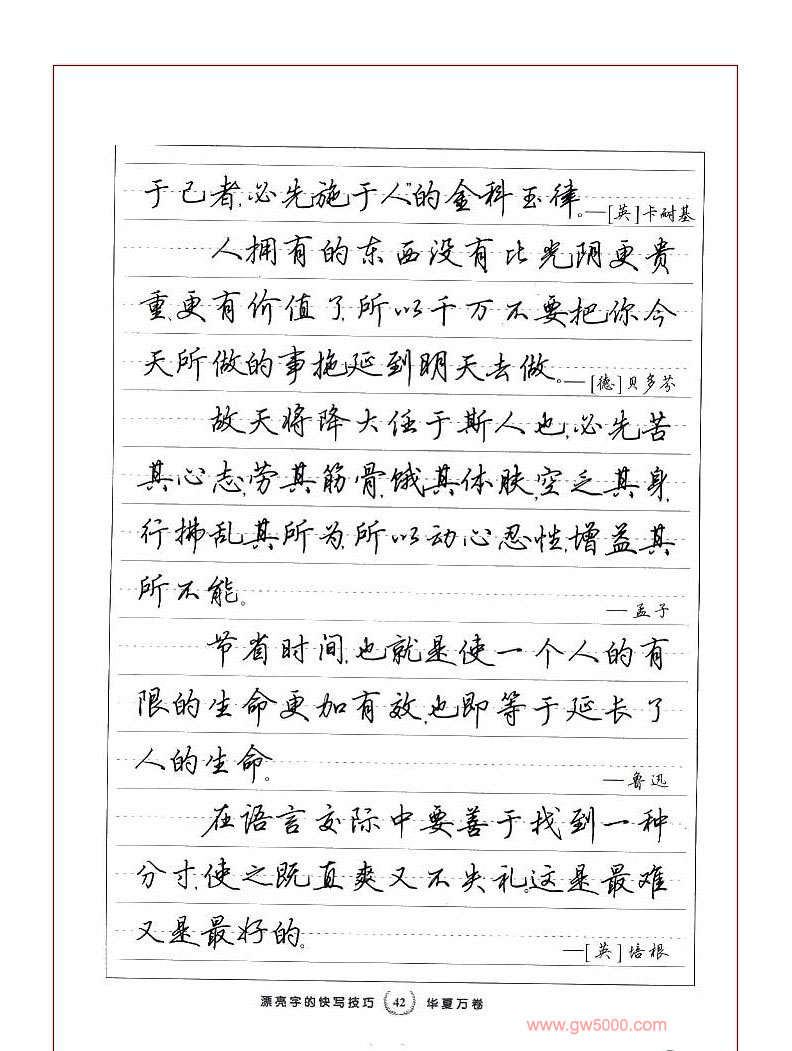 于己者,必先施于人”的金科玉律。—[英]卡耐基
人拥有的东西没有比光阴更贵
重、更有价值了,所以千万不要把你今
天所做的事拖延到明天去做。—[德]贝多芬
故天将降大任于斯人也,必先苦
其心志,劳其筋骨,饿其体肤,空乏其身,
行拂乱其所为,所以动心忍性,增益其
所不能。
—孟子
节省时间,也就是使一个人的有
限的生命更加有效,也即等于延长了
人的生命。
—鲁迅
在语言交际中要善于找到一种
分寸,使之既直爽又不失礼。这是最难
又是最好的。
—[英]培根
漂亮字的快写技巧 42 华夏万卷
www.gw5000.com